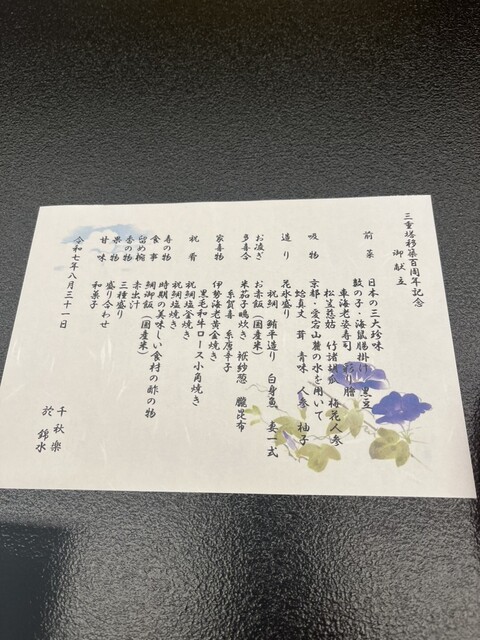 三重塔移築百周年記念
御献立
前菜 日本の三大珍味
数の子・海鼠腸掛け 黒豆
車海老姿寿司 彩り膾
松笠慈姑 竹諸胡瓜 梅花人参
吸物 京都・愛宕山麓の水を用いて
蛤真丈 茸 青味 人参 柚子
造り 花氷盛り
祝鯛 鮪平造り 白身魚 妻一式
お凌ぎ お赤飯(国産米)
多喜合 米茄子鴫炊き 袱紗葱 朧昆布
糸賀喜 糸唐辛子
家喜物 伊勢海老黄金焼き
黒毛和牛ロース小角焼き
祝肴 祝鯛塩釜焼き
祝鯛塩焼き
寿の物 時期の美味しい食材の酢の物
食事 鯛御飯(国産米)
留め椀 赤出汁
香の物 三種盛り
果物 盛り合わせ
甘味 和菓子
令和七年八月三十一日
千秋楽
於 錦水